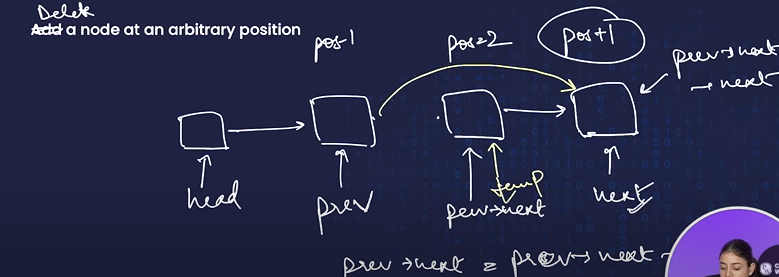 Delete
Add a node at an arbitrary position
pos-1
pos=2
pos+1
prev→next
→next
temp
head
prev
prev→next
next
prev→next = prev→next→